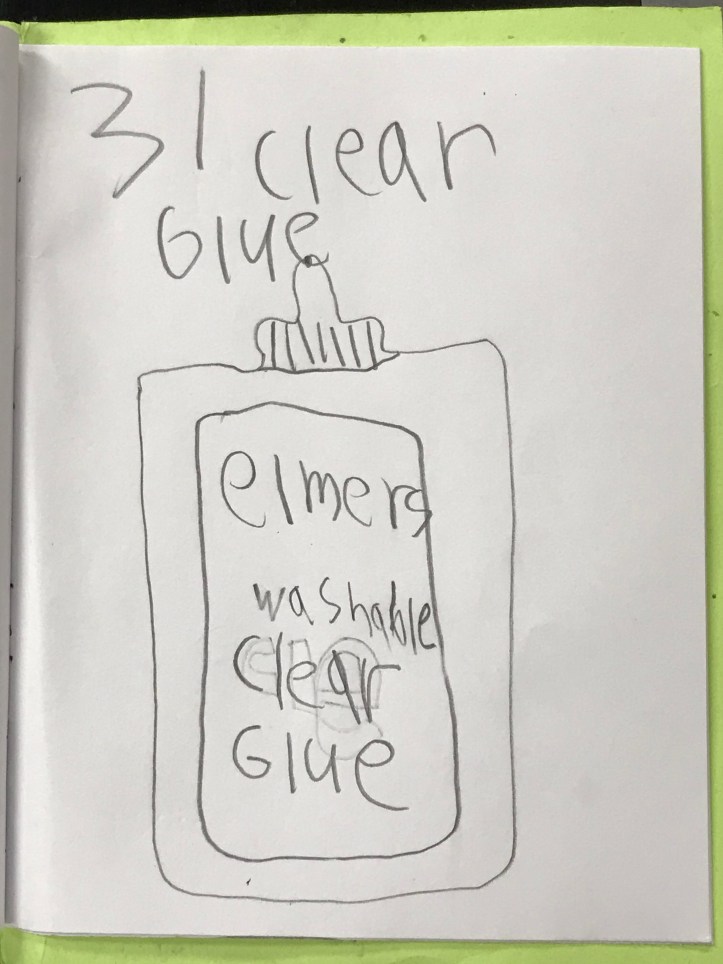 31 clear
Glue
elmers
washable
Clear
Glue